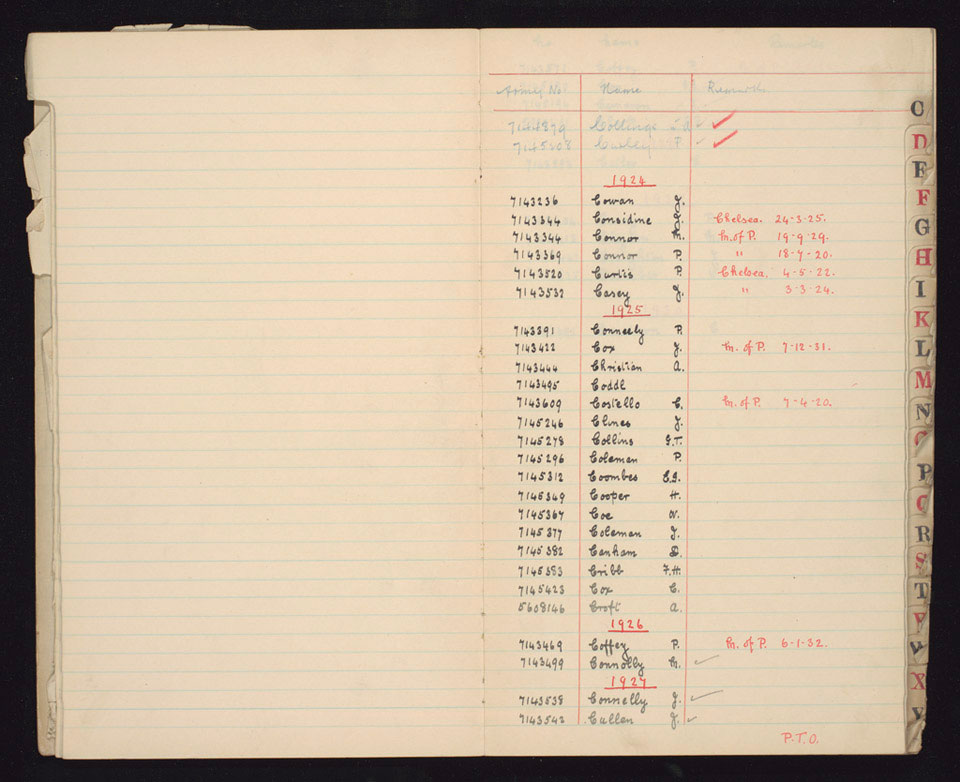 Army No Name Remarks
7144879 Collings J A ✓ ✓
7145608 Curley F. ✓ ✓
1924
7143236 Cowan J.
7143344 Considine J. Chelsea. 24-3-25.
7143344 Connor M. M. of P. 19-9-29.
7143369 Connor P. " 18-7-20.
7143520 Curtis P. Chelsea. 4-5-22.
7143532 Casey J. " 3-3-24.
1925
7143391 Conneely P.
7143422 Cox J. M. of P. 7-12-31.
7143444 Christian A.
7143495 Coddl
7143609 Costello C. M. of P. 7-4-20.
7145246 Clines J.
7145278 Collins G.T.
7145296 Coleman P.
7145312 Coombes C.G.
7145349 Cooper H.
7145367 Coe W.
7145377 Coleman J.
7145382 Canham D.
7145383 Cribb F.H.
7145423 Cox C.
5608146 Croft A.
1926
7143469 Coffey P. M. of P. 6-1-32.
7143499 Connolly M. ✓
1927
7143538 Connelly J. ✓
7143542 Cullen J. ✓
P.T.O.
C
D
E
F
G
H
I
K
L
M
N
O
P
Q
R
S
T
V
W
X
Y